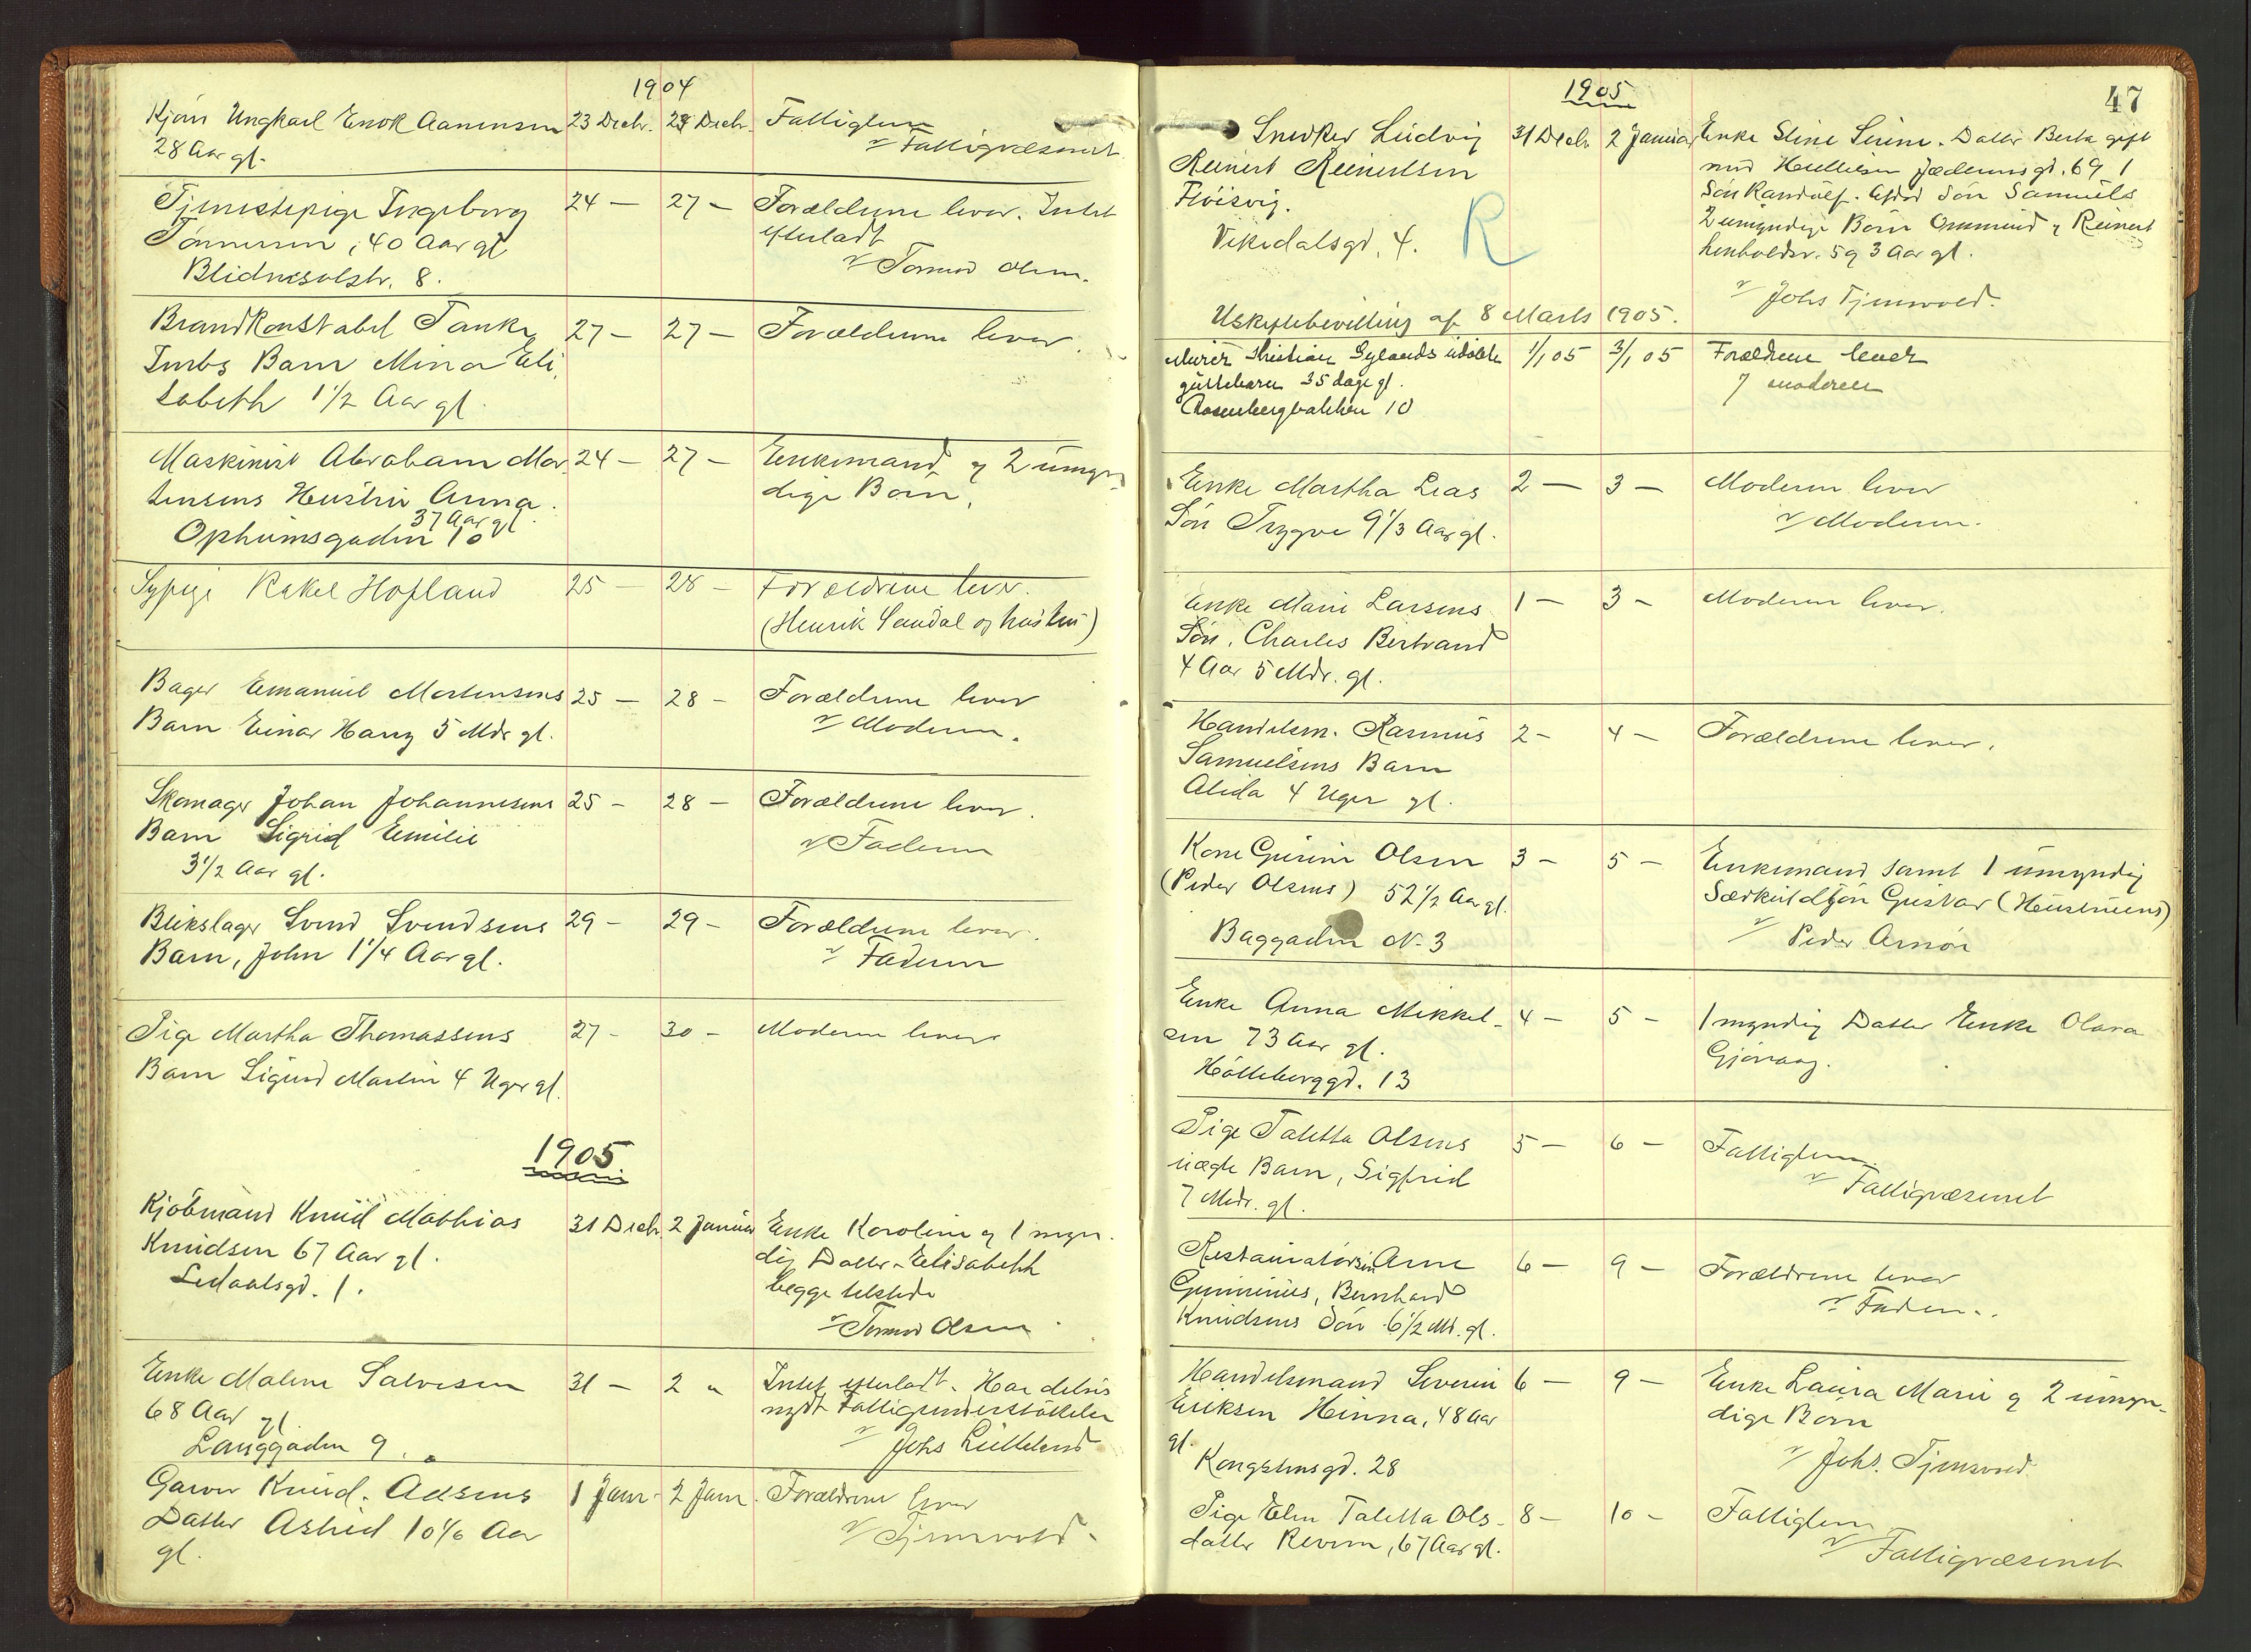 1904
Kjøn Ungkarl Enok Aanensen 23 Decbr. 28 Decbr. Fattiglem
28 Aar gl. v Fattigvæsenet
Tjenestepige Ingeborg 24 — 27 — Forældrene lever. Intet
Tønnesen, 40 Aar gl efterladt
Blidensolstr. 8. v Tormod Olsen.
Brandkonstabel Tanke 27 — 27 — Forældrene lever.
Barn Mina Eli
sabeth 1 1/2 Aar gl.
Maskinist Abraham Mor 24 — 27 — Enkemand, og 2 umyn
tensens Hustru Anna. dige Børn.
37 Aar gl.
Opheimsgaden 10
Sypige Rakel Hofland 25 — 28 — Forældrene lever.
(Henrik Sandal og hustru)
Bager Emanuel Mortensens 25 — 28 — Forældrene lever
Barn Einar Harry 5 Mdr gl. v Moderen.
Skomager Johan Johannesens 25 — 28 — Forældrene lever.
Barn Sigrid Emilie v Faderen
3 1/2 Aar gl.
Blikslager Svend Svendsens 29 — 29 — Forældrene lever.
Barn, John 1 1/4 Aar gl. v Faderen
Pige Martha Thomassens 27 — 30 — Moderen lever
Barn Sigurd Martin 4 Uger gl.
1905
Kjøbmand Knud Mathias 31 Decbr. 2 Januar Enke Karoline og 1 myn.
Knudsen 67 Aar gl. dig Datter Elisabeth
Ledaalsgd. 1. begge tilstede
v Tormod Olsen
Enke Malene Salvesen 31 — 2 " Intet efterladt. Har delvis
68 Aar gl. nydt Fattigunderstøttelse
Langgaden 9. v Johs Lilleland
Garver Knud. Datter 1 Janr. 2 Janr. Forældrene lever
Astrid 10 1/6 Aar v Tjensvold.
gl.
47
1905
Snedker Ludvig 31 Decbr 2 Januar Enke Stine Serine. Datter Berta gift
Reinert Reinertsen med Jæderensgd. 69 1
Fløisvig. Søn Randulf. Afdød Søn Samuels
Vikedalsgd. 4. R 2 umyndige Børn Ommund og Reinert
henholdsv. 5 og 3 Aar gl.
v Johs Tjensvold.
Uskiftebevilling af 8 Marts 1905.
Murer Kristian Gylands udøbte 1/1 05 3/1 05 Forældrene lever
guttebarn 35 dage gl. v moderen
Rosenbergbakken 10
Enke Martha Leas 2 — 3 — Moderen lever
Søn Trygve 9 1/3 Aar gl. v Moderen.
Enke Marie Larsens 1 — 3 — Moderen lever.
Søn, Charles Bertrand
4 Aar 5 Mdr. gl.
Handelsm. Rasmus 2 — 4 — Forældrene lever.
Samuelsens Barn
Alida 4 Uger gl.
Kone Gurine Olsen 3 — 5 — Enkemand samt 1 umyndig
(Peder Olsens) 52 1/2 Aar gl. Særkuldsøn Gustav (Hustruens)
Baggaden N. 3 v Peder Arnøn
Enke Anna Mikkel- 4 — 5 — 1 myndig Datter Enke Olava
sen 73 Aar gl. Gjøraag.
Hølleberggd. 13
Pige Taletta Olsens 5 — 6 — Fattiglem
uægte Barn, Sigfrid v Fattigvæsenet
7 Mdr. gl.
Restauratør Arne 6 — 9 — Forældrene lever
Gunnenius, Bernhard v Faderen.
Knudsens Søn 6 1/2 Md. gl.
Handelsmand Severin 6 — 9 — Enke Laura Marie og 2 umyn-
Eriksen Hinna, 48 Aar dige Børn
gl. v Johs. Tjensvold.
Kongstensgd. 28
Pige Elen Taletta Ols- 8 — 10 — Fattiglem
datter Revem, 67 Aar gl. v Fattigvæsenet